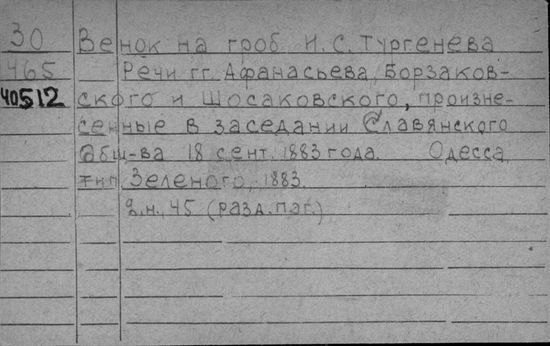 30 Венок на гроб И.С. Тургенева
465 Речи гг. Афанасьева, Борзаков-
40512 ского и Шосаковского, произне-
сенные в заседании Славянского
Общ-ва 18 сент. 1883 года. Одесса,
тип. Зеленого, 1883.
45 (разд. паг.)